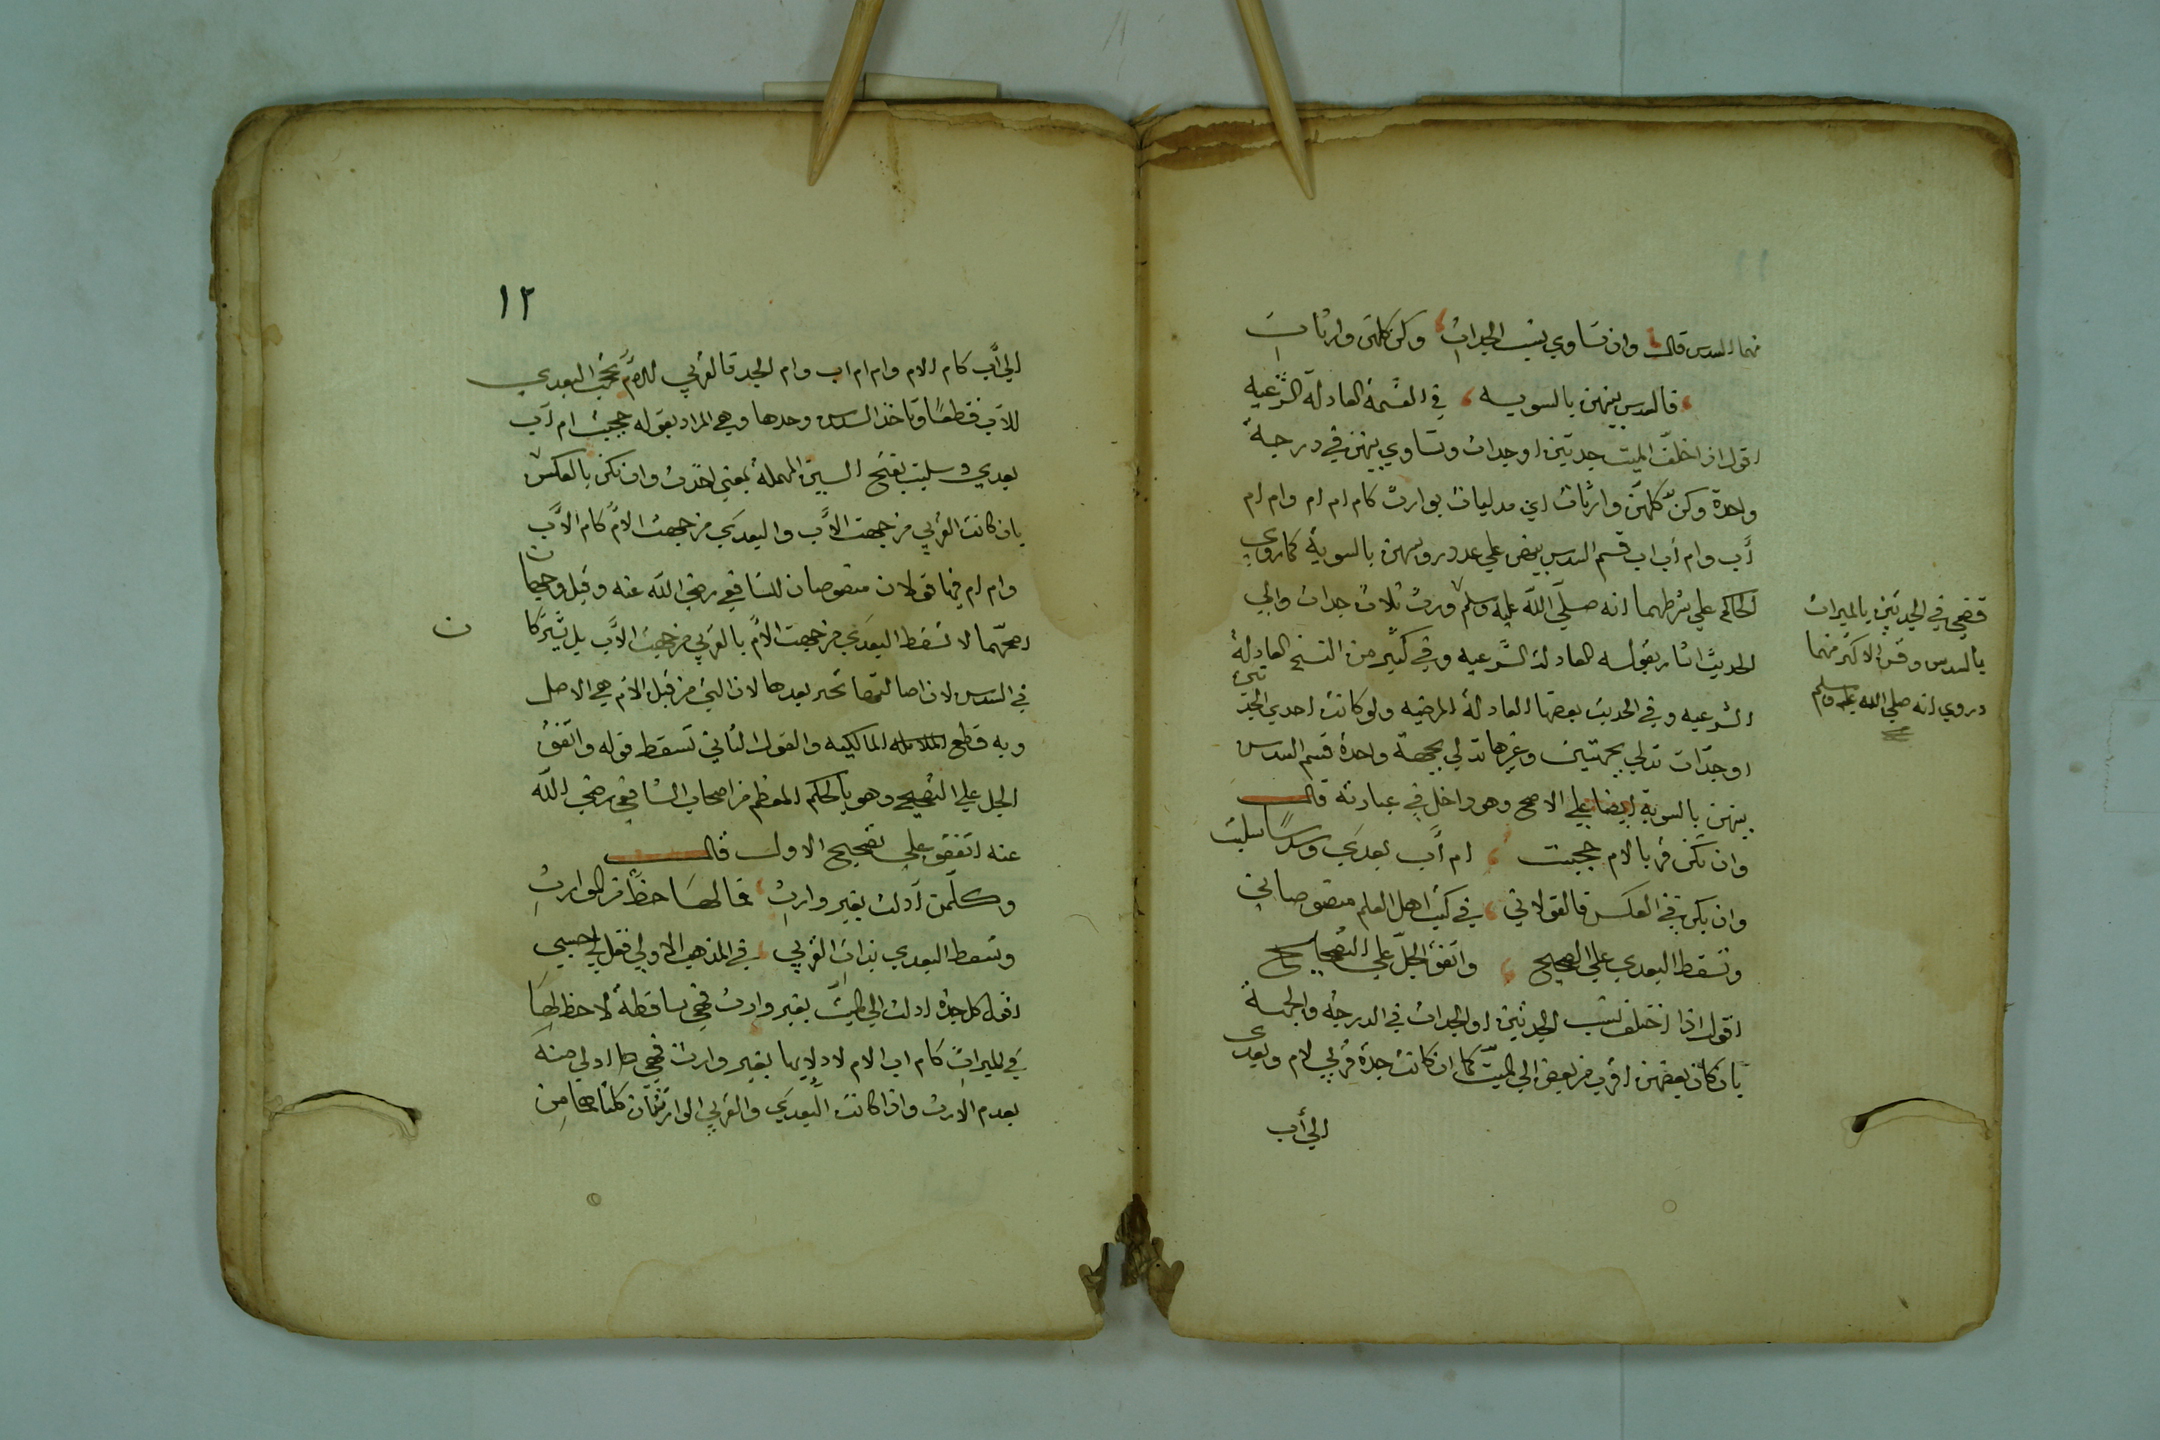 منهما السدس قال وان تساوي نسب الجدات وكن كلهن وارثات
فالسدس بينهن بالسويه في القسمة العادلة الشرعيه
اقول اذا خلف الميت جدتين او جدات وتساوي بينهن في درجة
واحدة وكن كلهن وارثات اي مدليات بوارث كام ام ام وام ام
أب وام أب اب قسم السدس بينهن علي عدد روسهن بالسوية كما روي
الحاكم علي شرطهما انه صلي الله عليه وسلم ورث ثلاث جدات والي
الحديث اشار بقوله العادلة الشرعيه وفي كثير من النسخ العادلة
الشرعيه وفي الحديث بعضها العادلة المرضيه ولو كانت احدي الجدتين
او جدات تدلي بجهتين وغيرها تدلي بجهة واحدة قسم السدس
بينهن بالسوية ايضا علي الاصح وهو داخل في عبارته قال
وان تكن قربا لام حجبت ام أب بعدي وسدسا سلبت
وان يكن في العكس فالقولاني في كتب اهل العلم منصوصاني
وتسقط البعدي علي الصحيح واتفق الجل علي التصحيح
اقول اذا اختلف نسب الجدتين او الجدات في الدرجة والجهة
بان كان بعضهن اقرب من بعض الي الميت كما ان كانت جدة قربي لام وبعدي
الي أب
قضي في الجدتين بالميراث
بالسدس
وروي انه صلي الله عليه وسلم
١٢
الي أب كام الام وام ام اب وام الجد فالقربي للام تحجب البعدي
للاب قطعا وتاخذ السدس وحدها وهي المراد بقوله حجبت ام أب
بعدي وسلبت بفتح السين المهملة بمعني اخذت وان تكن بالعكس
بان كانت القربي من جهت الأب والبعدي من جهت الام كام الأب
وام ام فيها قولان منصوصان للشافعي رضي الله عنه وقيل وجهان
اصحهما لا تسقط البعدي من جهت الأم بالقربي من جهت الأب بل تشتركا
في السدس لان اصالتها تجبر بعدها لان التي من قبل الام هي الاصل
وبه قطع المالكيه والقول الثاني تسقط قوله واتفق
الجل علي التصحيح وهو بالحكم المعظم من اصحاب الشافعي رضي الله
عنه اتفقو علي تصحيح الاول قال
وكل من أدلت بغير وارث فما لها حظ من الموارث
وتسقط البعدي بذات القربي في المذهب الاولي فقل لي حسبي
اقول كل جدة ادلت الي الميت بغير وارث فهي ساقطة لا حظ لها
في الميراث كام اب الام لادلايها بغير وارث فهي اولي منه
بعدم الارث واذا كانت البعدي والقربي الوارثتان كلتاهما من
ن